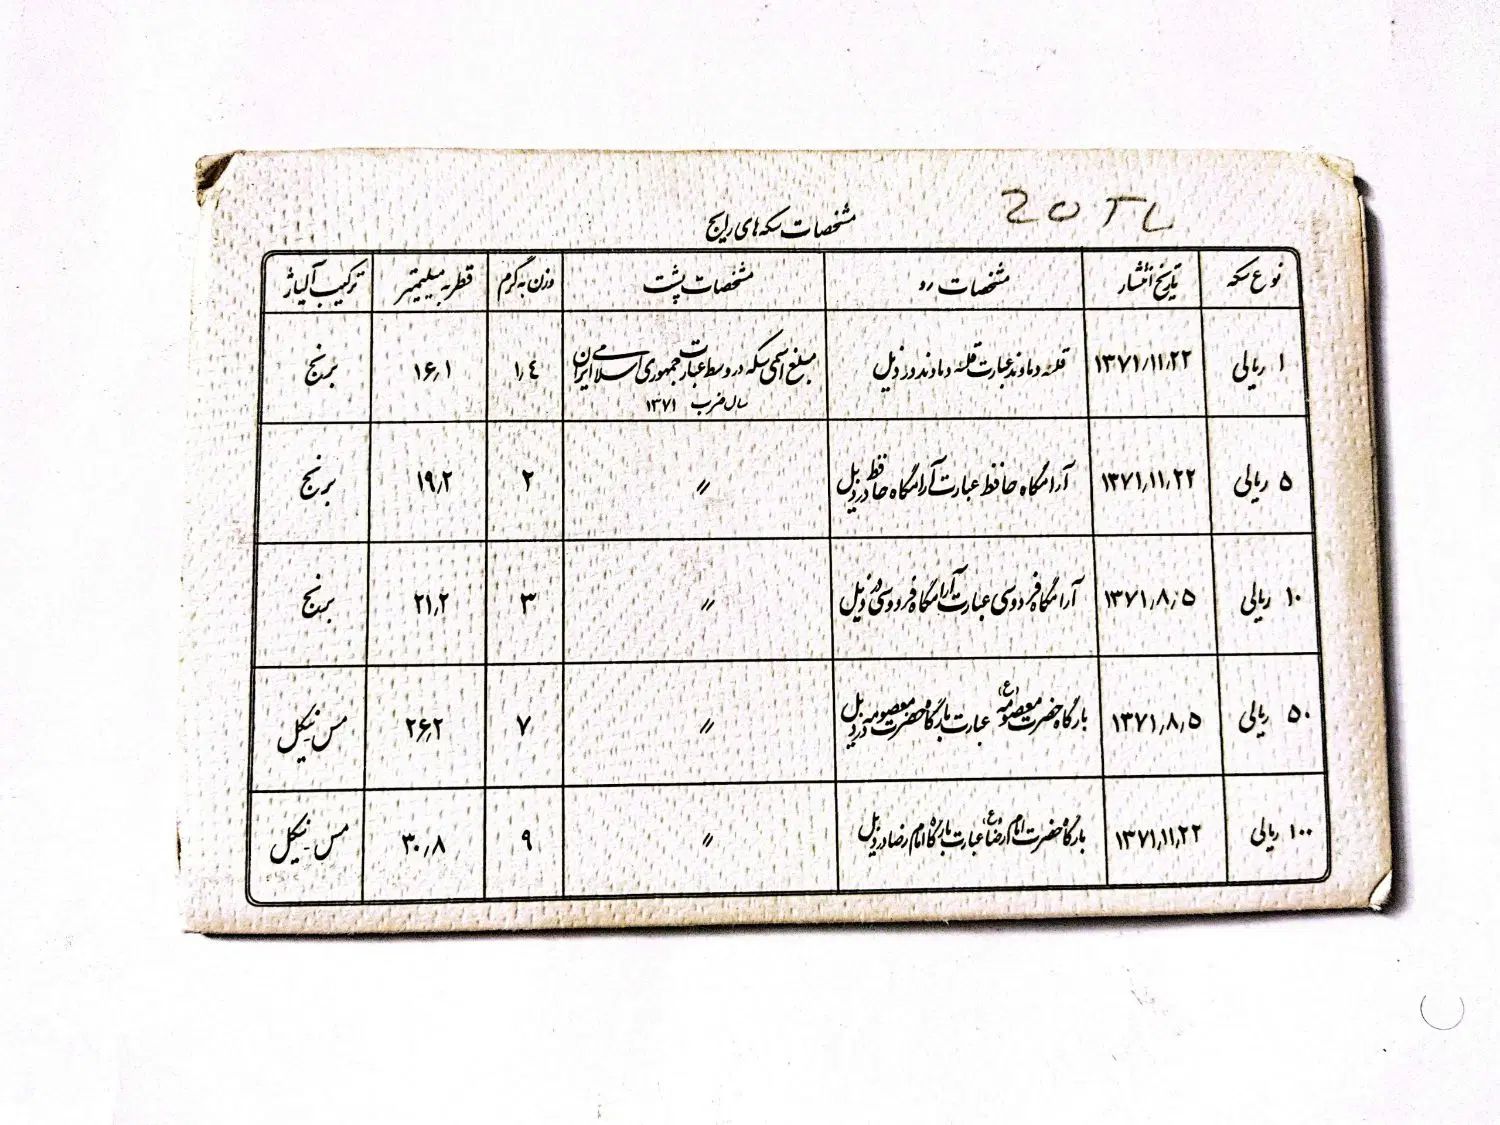 20 TL
مشخصات سکه های رایج
نوع سکه	تاریخ انتشار	مشخصات رو	مشخصات پشت	وزن به گرم	قطر به میلیمتر	ترکیب آلیاژ
۱ ریالی	۱۳۷۱/۱۱/۲۲	قله دماوند عبارت قله دماوند در ذیل	مبلغ اسمی سکه در وسط عبارت جمهوری اسلامی ایران	۱٫۴	۱۶٫۱	برنج
سال ضرب ۱۳۷۱
۵ ریالی	۱۳۷۱٫۱۱٫۲۲	آرامگاه حافظ عبارت آرامگاه حافظ در ذیل	〃	۲	۱۹٫۲	برنج
۱۰ ریالی	۱۳۷۱٫۸٫۵	آرامگاه فردوسی عبارت آرامگاه فردوسی در ذیل	〃	۳	۲۱٫۲	برنج
۵۰ ریالی	۱۳۷۱٫۸٫۵	بارگاه حضرت معصومه (ع) عبارت بارگاه حضرت معصومه در ذیل	〃	۷	۲۶٫۲	مس نیکل
۱۰۰ ریالی	۱۳۷۱٫۱۱٫۲۲	بارگاه حضرت امام رضا (ع) عبارت بارگاه امام رضا در ذیل	〃	۹	۳۰٫۸	مس-نیکل